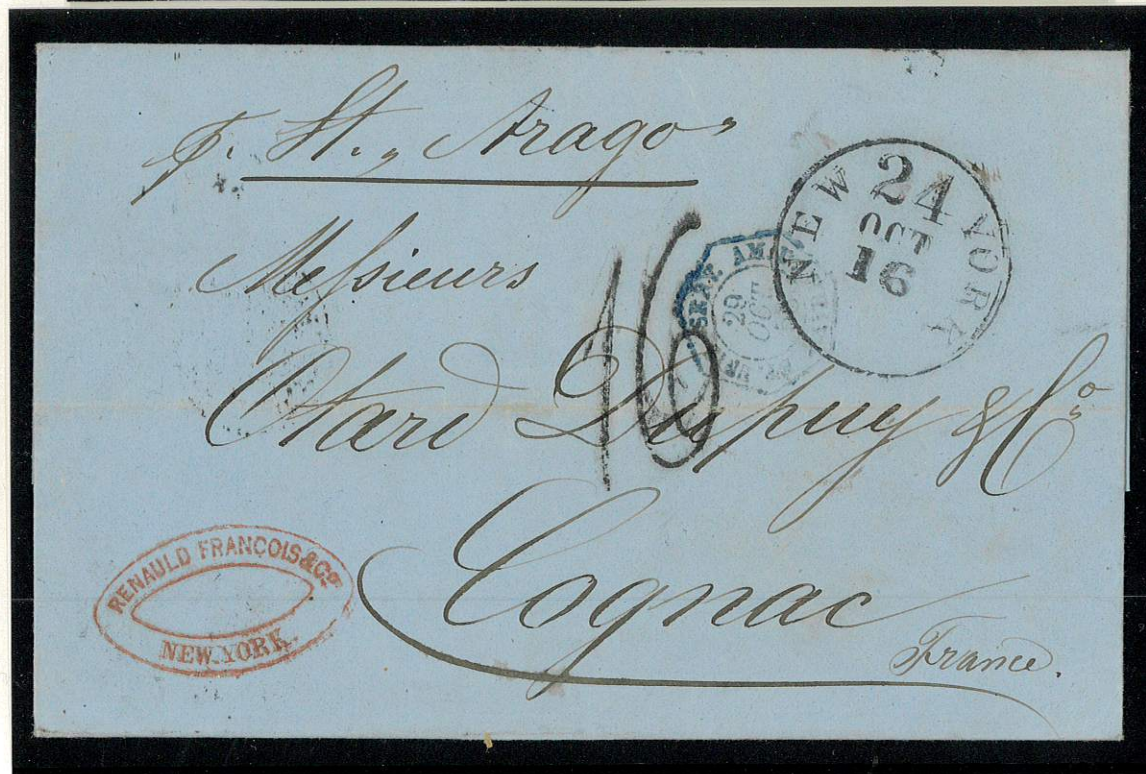 p. St. „ Arago "
NEW YORK
24
OCT
16
Messieurs
16
29
OCT
Otard Dupuy & Co
Cognac
France.
RENAULD FRANÇOIS & Co
NEW-YORK.